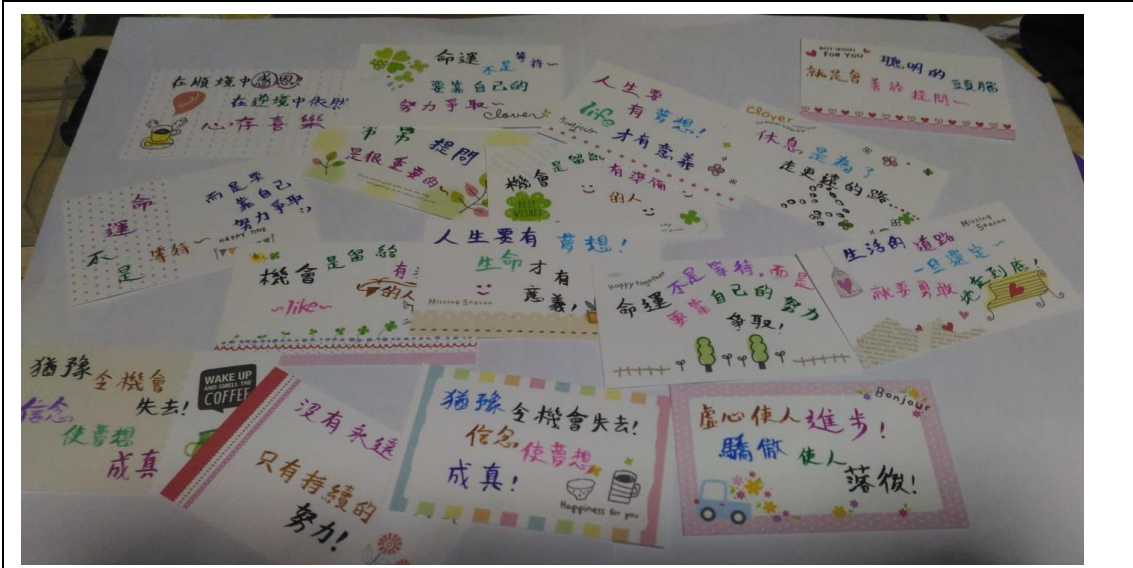 在順境中感恩!
在逆境中依然
心存喜樂
命運不是等待~
要靠自己的
努力爭取~
clover
BEST WISHES
FOR YOU
聰明的
就是會善於提問~
頭腦
人生要
有夢想!
life
Bonjour
才有意義
Clover
休息是為了
走更遠的路...
提問
是很重要的~
機會是留給
有準備
的人
BEST
WISHES
命
運
不
是
等待~
而是要
靠自己
努力爭取
HAPPY TIME
機會是留給
有
的人
~like~
人生要有夢想!
生命才有
意義!
Missing Season
Happy together
命運不是等待,而是
要靠自己的努力
爭取!
Missing Season
生活的道路
一旦選定~
就要勇敢
走到底!
猶豫令機會
失去!
信念
使夢想
成真
WAKE UP
AND SMELL THE
COFFEE
沒有永遠
只有持續的
努力!
猶豫令機會失去!
信念使夢想
成真!
Happiness for you
Bonjour
虛心使人進步!
驕傲使人
落後!